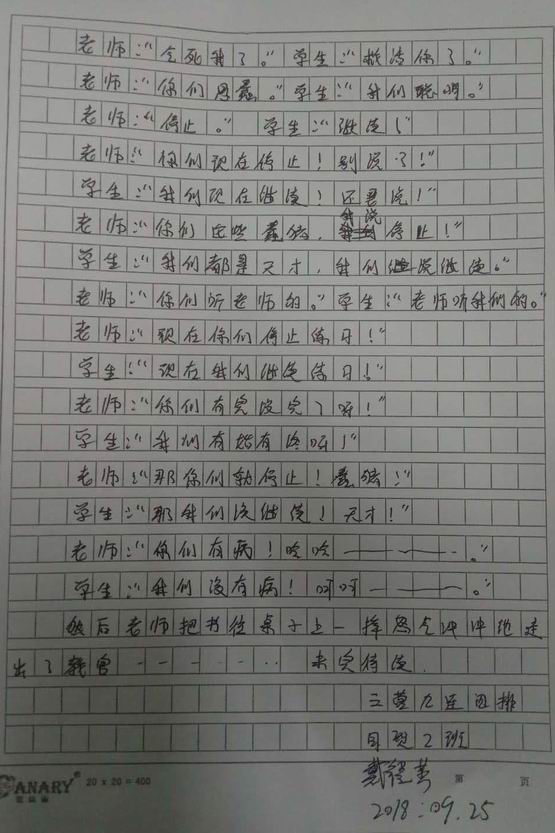 老师:“气死我了。”学生:“救活你了。”
老师:“你们愚蠢。”学生:“我们聪明。”
老师:“停止。” 学生:“继续!”
老师:“你们现在停止!别说了!”
学生:“我们现在继续!还要说!”
老师:“你们这些蠢猪,我说停止!”
学生:“我们都是天才,我们说继续。”
老师:“你们听老师的。”学生:“老师听我们的。”
老师:“现在你们停止练习!”
学生:“现在我们继续练习!”
老师:“你们有完没完了呀!”
学生:“我们有始有终呀!”
老师:“那你们就停止!蠢猪!”
学生:“那我们没继续!天才!”
老师:“你们有病!哈哈———。”
学生:“我们没有病!呵呵———。”
然后老师把书往桌子上一摔怒气冲冲地走
出了教室------未完待续.
三营九连四排
日 2班
戴
2018:09.25
ANARY 20 x 20 = 400 第 页